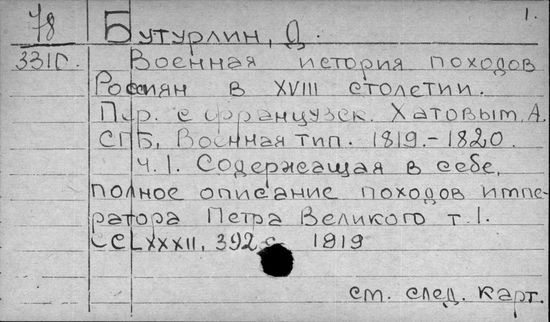 78 Бутурлин, Д. 1.
331Г. Военная история походов
Россиян в XVIII столетии.
Пер. с французск. Хатовым, А.
СПБ, Военная тип. 1819.-1820.
ч.1. Содержащая в себе,
полное описание походов импе-
ратора Петра Великого т.1.
CCLXXXII, 392 с. 1819
см. след. карт.